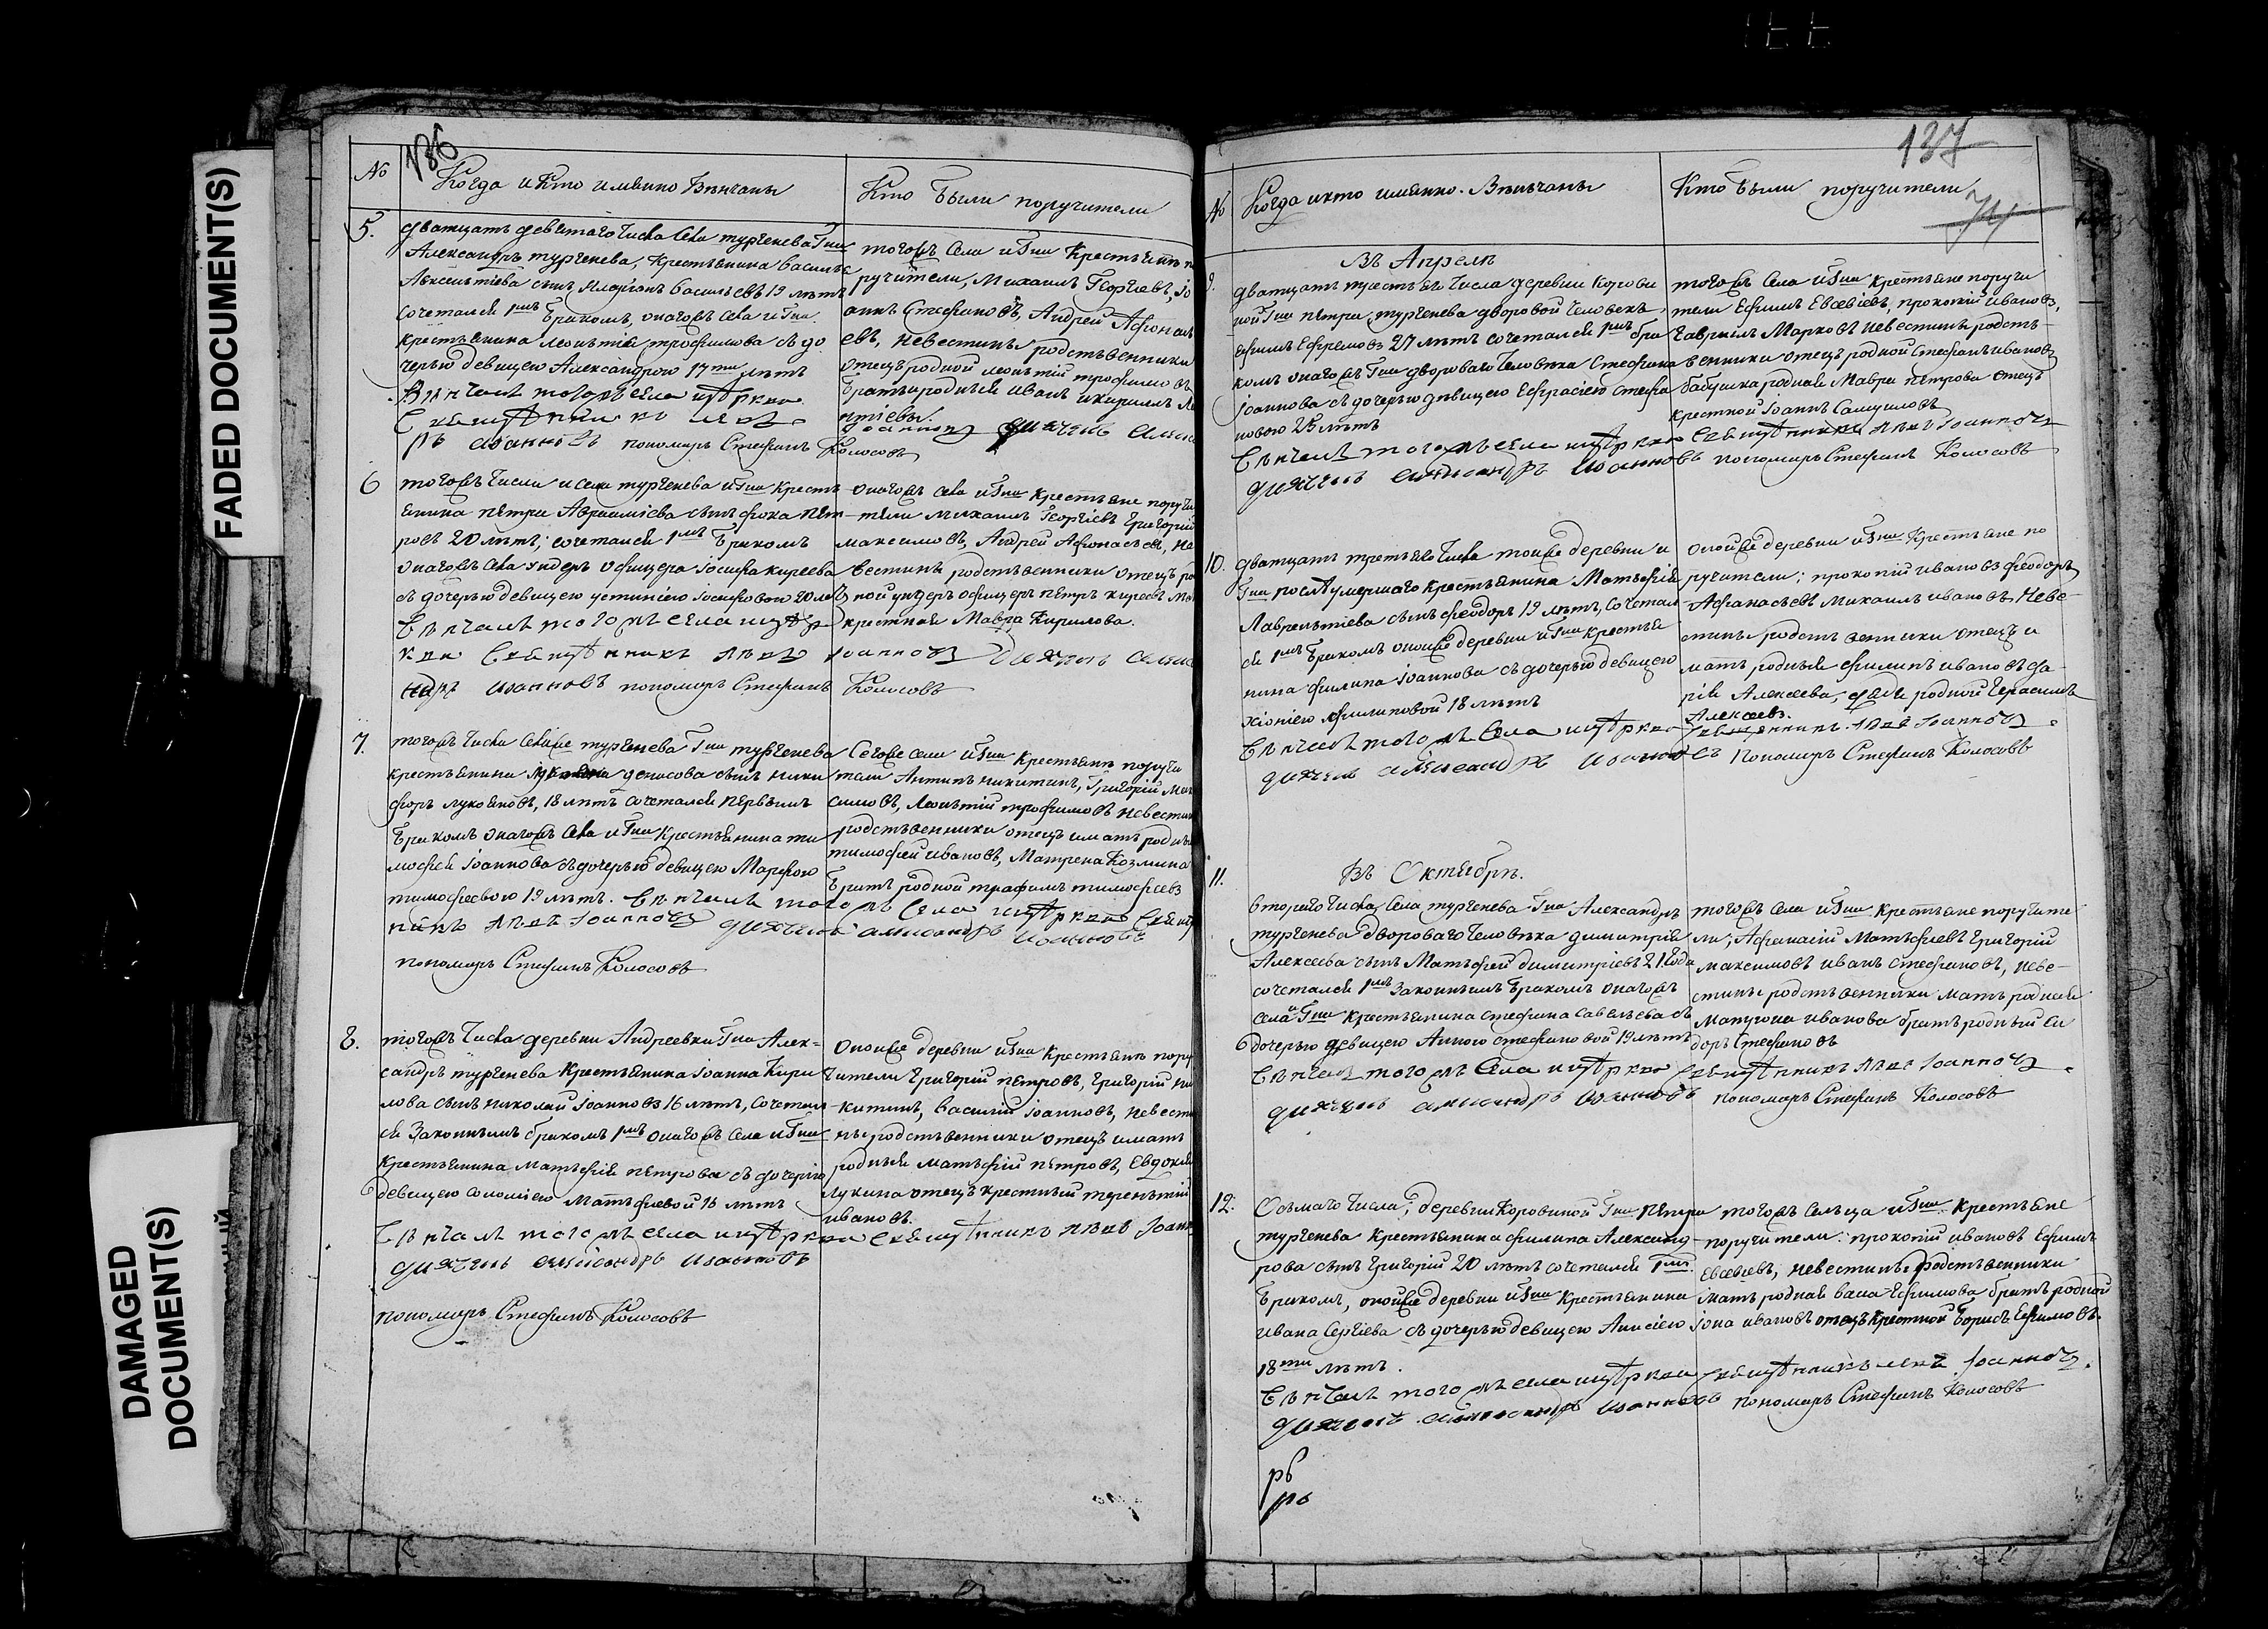 FADED DOCUMENT(S)
DAMAGED
DOCUMENT(S)
136
№
Когда и Кто имянно Вѣнчаны
Кто были поручители
5.
дватцать девятаго числа села тургенева Гна
Александръ тургенева, крестьянина василья
Авксентіева сынъ Иларіонъ васильевъ 19 лѣтъ
сочетался 1мъ бракомъ, онагожъ села и Гна
крестьянина леонтія трофимова съ до
черью девицею Александрою 17ти лѣтъ
Вѣнчалъ тогожъ села церкви
Священникъ
Іоанновъ дьячекъ
ръ иванновъ пономарь Стефанъ Колосовъ
тогожъ села и Гна Крестьяне по
ручители, Михаилъ Георгіевъ, Іо
аннъ Стефановъ, Андрей Афонась
евъ, невестины родственники
отецъ родной леонтій трофимовъ
братья родные иванъ и кирилъ ле
нтіевы
6
тогожъ числа и села тургенева и Гна крестъ
янина петра Авраамиева сынъ фока пет
ровъ 20 лѣтъ, сочетался 1мъ бракомъ
онагожъ села ундеръ офицера іосифа киреева
съ дочерью девицею устиніею іосифовою 20 лѣ
Вѣнчалъ тогожъ села церк
кви Священникъ Іоанновъ Дьячекъ
ндръ иванновъ пономарь Стефанъ Колосовъ
онагожъ села и Гна крестьяне поручи
тели михаилъ Георгіевъ Григорій
максимовъ, Андрей Афонасьевъ, не
вестины родственники отецъ ро
ной ундеръ офицеръ петръ киреевъ
крестная Мавра Кирилова.
7.
тогожъ числа селаже тургенева Гна тургенева
крестьянина денисова сынъ ники
форъ лукояновъ, 18 лѣтъ сочетался первымъ
бракомъ онагожъ села и Гна Крестьянина ти
мофея іоаннова съ дочерью девицею Марфою
тимофеевою 19 лѣтъ. Вѣнчалъ того
жъ села церкви Священ
никъ Іоанновъ дьячекъ александръ иванновъ
пономарь Стефанъ Колосовъ
Сегоже села и Гна крестьяне поручи
тели Антипъ никитинъ, Григорій Мак
симовъ, леонтій трофимовъ невестин
родственники отецъ и мать родные
тимофей ивановъ, Матрена Козмина
братъ родной трофимъ тимофеевъ
8.
тогожъ числа деревни Андреевки Гна Алек=
сандръ тургенева Крестьянина іоанна Кири
лова сынъ николай іоанновъ 16 лѣтъ, сочетал
ся законнымъ бракомъ 1мъ онагожъ села и Гна
крестьянина матвфія петрова съ дочерію
девицею соломіею Матвфиевой 16 лѣтъ
Вѣнчалъ тогожъ села церкви Священникъ Іоанн
дьячекъ александръ иванновъ
пономарь Стефанъ Колосовъ
Оноиже деревни и Гна крестьяне пору
чители Григорій петровъ, Григорій ни
китинъ, василий іоанновъ, невести
ны родственники отецъ и мать
родные матвфій петровъ, Евдокия
лукина отецъ крестный терентій
ивановъ.
137
74
№
Когда и кто имянно. Вѣнчаны
Кто были поручители
Въ Апрелѣ
9.
дватцать третьяго числа деревни Корови
ной Гна петра тургенева дворовой человекъ
ефимъ Ефремовъ 27 лѣтъ сочетался 1мъ бра
комъ онагожъ Гна двороваго человека Стефана
іоаннова съ дочерью девицею Ефрасіею стефа
новою 25 лѣтъ
Вѣнчалъ тогожъ села церкви Священникъ Іоанновъ
дьячекъ александръ иванновъ пономарь Стефанъ Колосовъ
тогожъ села и Гна крестьяне поручи
тели Ефимъ Евсевіевъ, прокопій ивановъ,
Гаврилъ Марковъ невестины родст-
венники отецъ родной стефанъ ивановъ
бабушка родная Мавра петрова отецъ
крестной іоаннъ Самуиловъ
10.
дватцать третьяго числа тоиже деревни и
Гна послѣ умершаго крестьянина Матвфія
Лаврентіева сынъ феодоръ 19 лѣтъ, сочетал
ся 1мъ бракомъ оноиже деревни и Гна крестья
нина филипа іоаннова съ дочерью девицею
хіоніею филиповой 18 лѣтъ
Вѣнчалъ тогожъ села церкви Священникъ Іоанновъ
дьячекъ александръ иванновъ Пономарь Стефанъ Колосовъ
оноиже деревни и Гна крестьяне по
ручители; прокопій ивановъ феодоръ
Афанасьевъ михаилъ ивановъ неве-
стины родственники отецъ и
мать родные филипъ ивановъ да
рія Алексеева, дядя родной Герасимъ
Алексеевъ.
11.
Въ Октябрѣ.
втораго числа села тургенева Гна Александръ
тургенева двороваго человека димитрія
Алексеева сынъ Матвфей димитріевъ 21 года
сочетался 1мъ законнымъ бракомъ онагожъ
села и Гна крестьянина стефана савельева съ
дочерью девицею Анною стефановой 19 лѣтъ
Вѣнчалъ тогожъ села церкви Священникъ Іоанновъ
дьячекъ александръ иванновъ пономарь Стефанъ Колосовъ
тогожъ села и Гна крестьяне поручите
ли, Афанасій Матвфиевъ Григорій
максимовъ иванъ стефановъ, неве-
стины родственники мать родная
матрона иванова братъ родный си
доръ Стефановъ
12.
Осьмаго числа, деревни Коровиной Гна петра
тургенева крестьянина филипа Александ-
рова сынъ Григорій 20 лѣтъ сочетался 1мъ
бракомъ, оноиже деревни и Гна крестьянина
ивана Сергіева съ дочерью девицею Анисіею
18ти лѣтъ.
Вѣнчалъ тогожъ села церкви Священникъ Іоанновъ
дьячекъ александръ иванновъ пономарь Стефанъ Колосовъ
тогожъ сельца и Гна крестьяне
поручители: прокопій ивановъ Ефимъ
Евсевіевъ, невестины родственники
мать родная васа Ефимова братъ родной
іона ивановъ отецъ крестной Борисъ Ефимовъ.